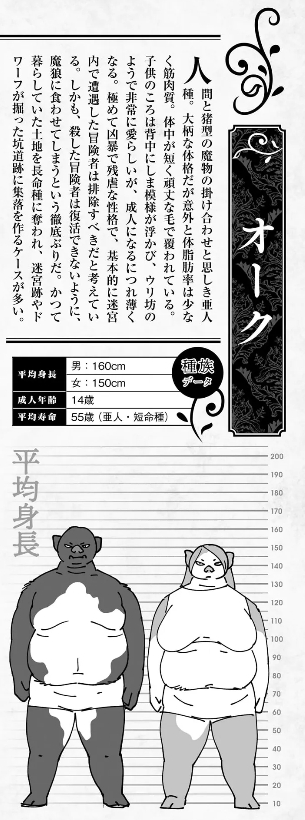 オーク
人間と猪型の魔物の掛け合わせと思しき亜人
種。大柄な体格だが意外と体脂肪率は少な
く筋肉質。体中が短く頑丈な毛で覆われている。
子供のころは背中にしま模様が浮かび、ウリ坊の
ようで非常に愛らしいが、成人になるにつれ薄く
なる。極めて凶暴で残虐な性格で、基本的に迷宮
内で遭遇した冒険者は排除すべきだと考えてい
る。しかも、殺した冒険者は復活できないように、
魔狼に食わせてしまうという徹底ぶりだ。かつて
暮らしていた土地を長命種に奪われ、迷宮跡やド
ワーフが掘った坑道跡に集落を作るケースが多い。
種族
データ
平均身長
男：160cm
女：150cm
成人年齢 14歳
平均寿命 55歳（亜人・短命種）
平均身長
200
190
180
170
160
150
140
130
120
110
100
90
80
70
60
50
40
30
20
10